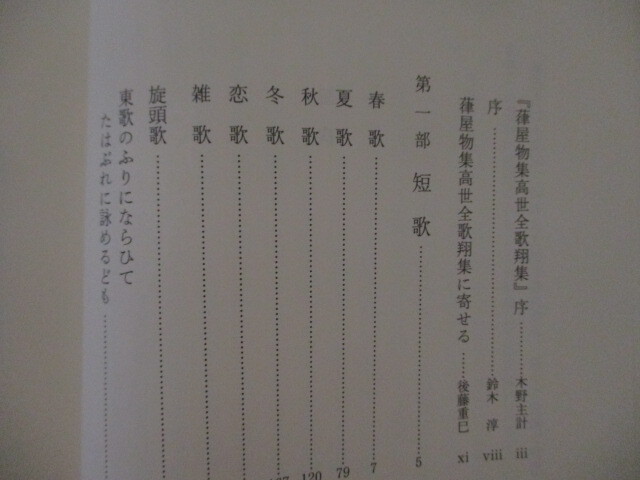 『葎屋物集高世全歌翔集』序…………木野主計 iii
序…………鈴木 淳 viii
葎屋物集高世全歌翔集に寄せる……後藤重巳 xi
第一部 短歌…………5
春歌…………7
夏歌…………79
秋歌…………120
冬歌…………
恋歌…………
雑歌…………
旋頭歌…………
東歌のふりにならひて
たはぶれに詠めるども…………